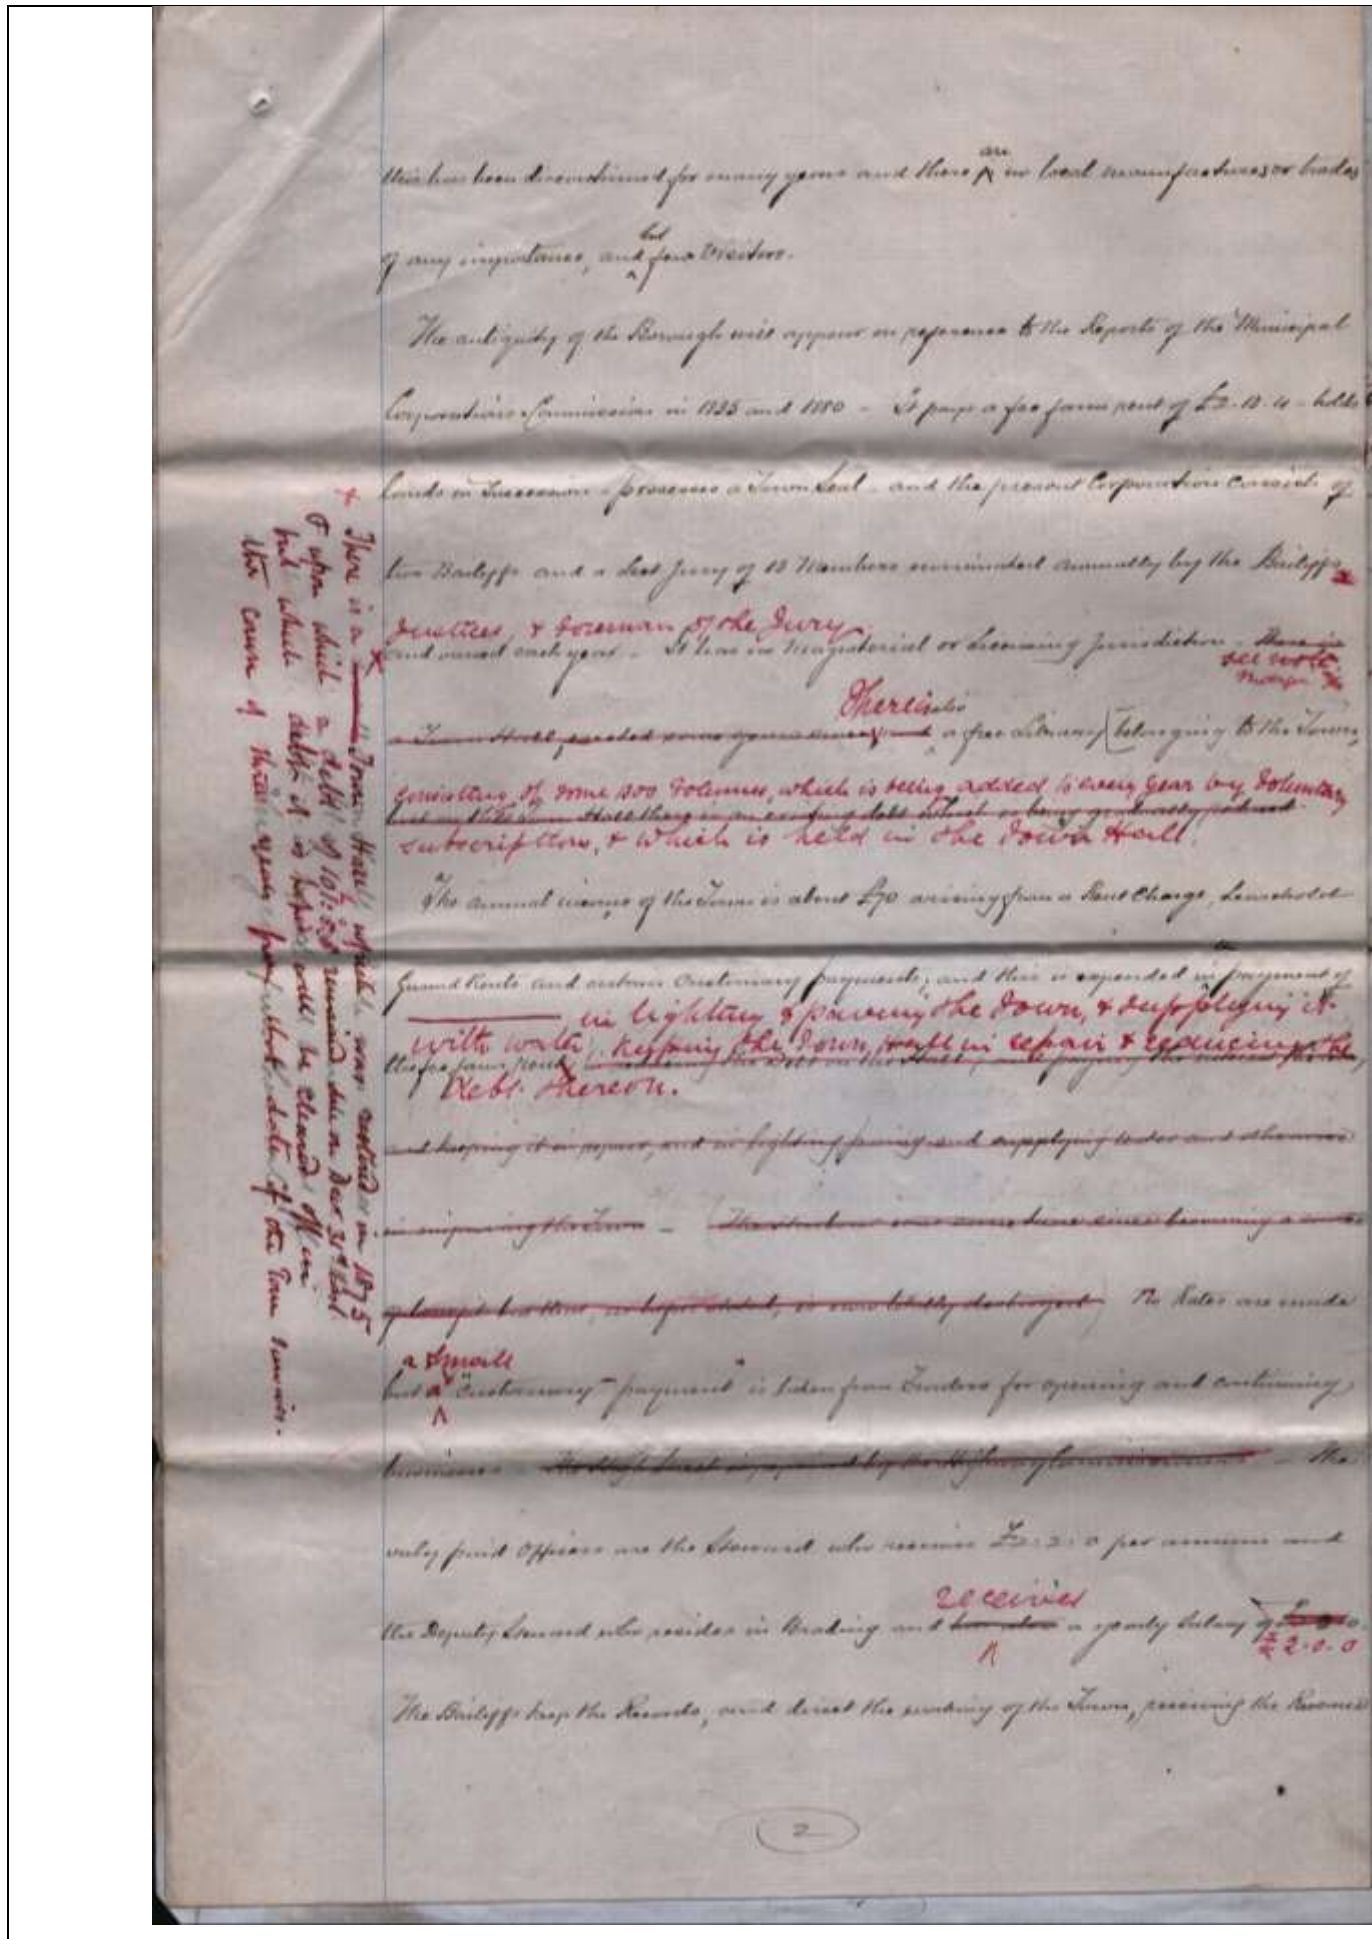 this has been discontinued for many years and there are no local manufactures or trades
of any importance, and but few Visitors.
The antiquity of the Borough will appear on reference to the Reports of the Municipal
Corporations Commission in 1835 and 1880 – It pays a fee farm rent of £2.13.4 – holds
Lands in Succession – possesses a Town Seal – and the present Corporation consists of
two Bailiffs and a Leet Jury of 13 Members nominated annually by the Bailiffs
Justices, & Foreman of the Jury
and varied each year – It has no Magisterial or Licensing jurisdiction – There is
see note
margin
There is also
a Town Hall, erected some years since, and a free Library belonging to the Town,
Consisting of some 500 Volumes, which is being added to every year by Voluntary
but on the Town Hall there is an existing debt which is being gradually reduced
subscription, & which is held in the Town Hall.
The annual income of the Town is about £70 arising from a Rent Charge, Leasehold
Ground Rents and certain Customary payments; and this is expended in the payment of
in lighting & paving the Town, & supplying it
with water, keeping the Town Hall in repair & reducing the
the fee farm rent,
debt thereon.
and keeping it in repair, and in lighting paving and supplying water and otherwise
in improving the Town –
No Rates are made
a small
but a "Customary payment" is taken from Traders for opening and continuing
business – The High Street is repaired by the Highway Commissioners – The
only paid Officers are the Steward who receives £2.2.0 per annum and
receives
the Deputy Steward who resides in Brading and has also a yearly Salary of
£2.0.0
The Bailiffs keep the Records, and direct the working of the Town, receiving the Revenue
2
x There is a Town Hall which was restored in 1875
& upon which a debt of remained due on Decr 31st last
but which debt it is hoped will be cleared off in
the course of three years from that date if the Town survives.